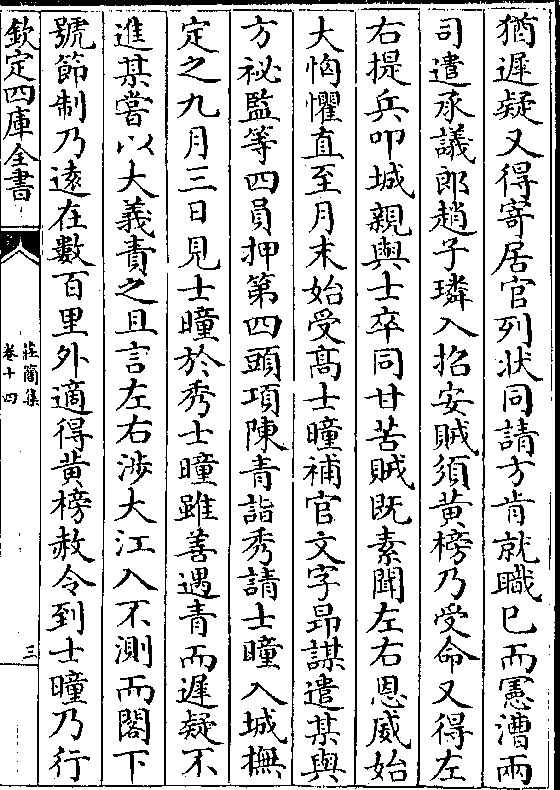 猶遲疑又得寄居官列狀同請方肯就職已而憲漕兩
司遣承議郎趙子璘入招安賊須黃榜乃受命又得左
右提兵叩城親與士卒同甘苦賊既素聞左右恩威始
大恟懼直至月末始受高士曈補官文字昻謀遣某與
方祕監等四員押第四頭項陳青詣秀請士曈入城撫
定之九月三日見士曈於秀士曈雖善遇青而遲疑不
進某嘗以大義責之且言左右渉大江入不測而閣下
號節制乃逺在數百里外適得黃榜赦令到士曈乃行
欽定四庫全書
莊簡集
卷十四
三